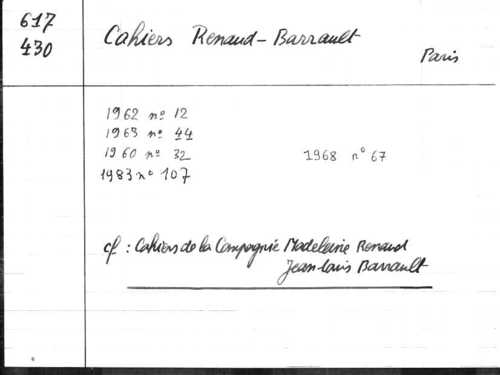 617
430
Cahiers Renaud-Barrault
Paris
1962 nº 12
1963 nº 44
1960 nº 32
1968 nº 67
1983 nº 107
cf : Cahiers de la Compagnie Madeleine Renaud
Jean-Louis Barrault